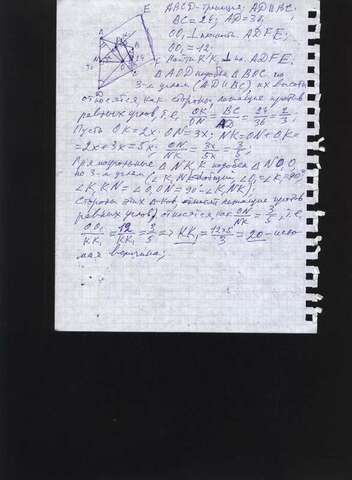 E ABCD-трапеция; AD||BC.
BC=24; AD=36
OO₁ ⊥ плоскости ADFE;
OO₁=12;
Найти KK₁ ⊥ пл. ADFE.
Δ AOD подобен Δ BOC по
3-м углам (AD||BC), их высоты
относятся как стороны, лежащие против
равных углов, т.е. OK/ON = BC/AD = 24/36 = 2/3.
Пусть OK=2x; ON=3x; NK=ON+OK=
=2x+3x=5x; ON/NK = 3x/5x = 3/5;
Прямоугольные Δ NKK₁ подобен Δ NOO₁
по 3-м углам (∠ K₁NK общий; ∠O₁=∠K₁=90°
∠K₁KN = ∠O₁ON = 90°-∠K₁NK);
Стороны этих Δ-ков, лежащие против
равных углов, относятся как ON/NK = 3/5, т.е.
OO₁/KK₁ = 12/KK₁ = 3/5 => KK₁ = 12×5/3 = 20 - иско-
мая величина;